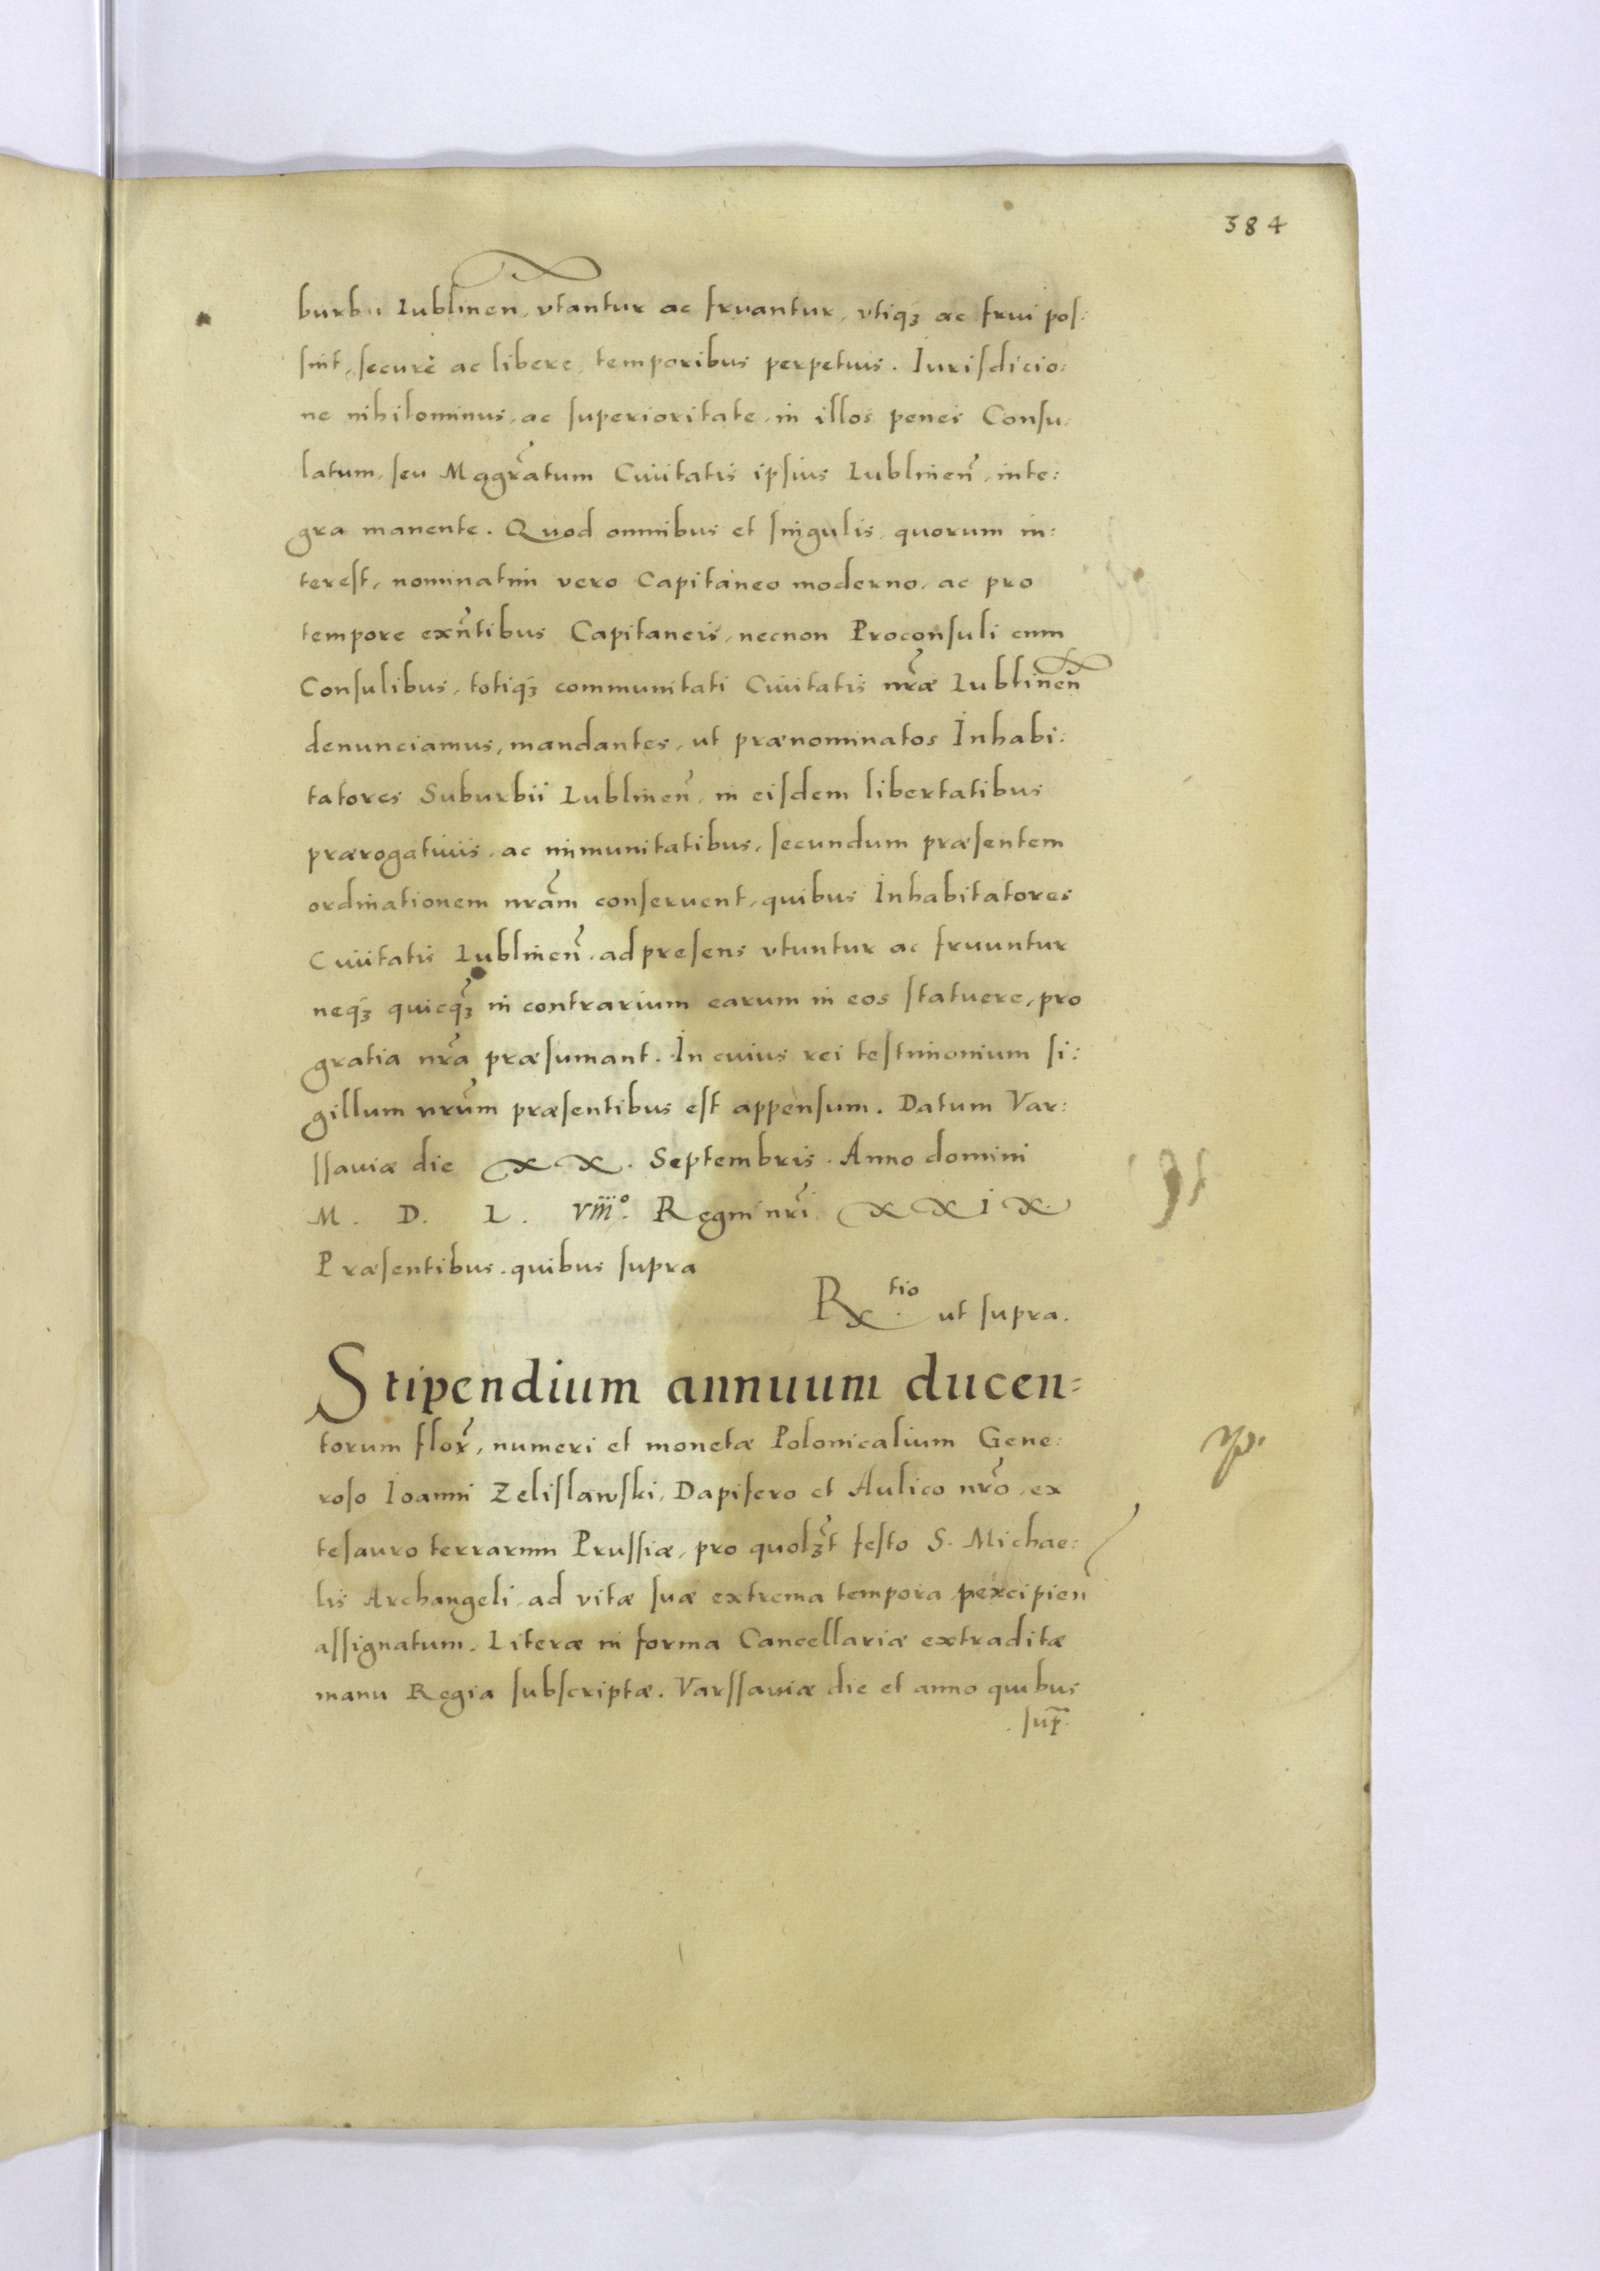 384
burbii Lublinen̄, vtantur ac fruantur, vtiqꝫ ac frui pos:
sint, securè ac libere, temporibus perpetuis. Iurisdicio:
ne nihilominus, ac superioritate, in illos penes Consu:
latum, seu Mggrātum Ciuitatis ipsius Lublinen̄, inte:
gra manente. Quod omnibus et singulis, quorum in:
terest, nominatim vero Capitaneo moderno, ac pro
tempore exn̄tibus Capitaneis, necnon Proconsuli cum
Consulibus, totiqꝫ communitati Ciuitatis nrӕ̄ Lublinen̄
denunciamus, mandantes, ut prænominatos Inhabi:
tatores Suburbii Lublinen̄, in eisdem libertatibus
prærogatiuis, ac immunitatibus, secundum præsentem
ordinationem nrām conseruent, quibus Inhabitatores
Ciuitatis Lublinen̄, ad presens vtuntur ac fruuntur
neqꝫ quicqꝫ̄ in contrarium earum in eos statuere, pro
gratia nrā præsumant. In cuius rei testimonium si:
gillum nrūm præsentibus est appensum. Datum Var:
ssauiæ die XX. Septembris. Anno domini
M. D. L. viii°. Regni nrī XXIX.
Præsentibus. quibus supra
Rx tio ut supra.
Stipendium annuum ducen=
torum flor̄, numeri et monetæ Polonicalium Gene:
roso Ioanni Zelislawski, Dapifero et Aulico nrō, ex
tesauro terrarum Prussiæ, pro quolꝫ̄t festo S. Michae:
lis Archangeli, ad vitæ suæ extrema tempora percipien̄
assignatum. Literæ in forma Cancellariæ extraditæ
manu Regia subscriptæ. Varssauiæ die et anno quibus
sup̄.